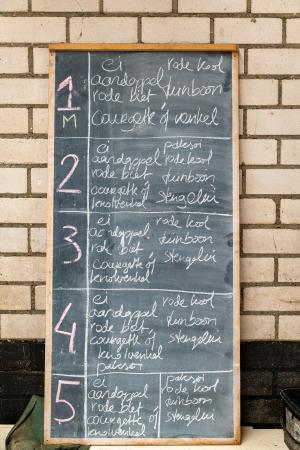 1 M
ei rode kool
aardappel tuinboon
rode biet
courgette of venkel
2
ei paksoi
aardappel rode kool
rode biet tuinboon
courgette óf stengelui
knolvenkel
3
ei rode kool
aardappel tuinboon
rode biet stengelui
courgette óf
knolvenkel
4
ei rode kool
aardappel tuinboon
rode biet, stengelui
courgette óf
knolvenkel
paksoi
5
ei paksoi
aardappel rode kool
rode biet tuinboon
courgette óf stengelui
knolvenkel